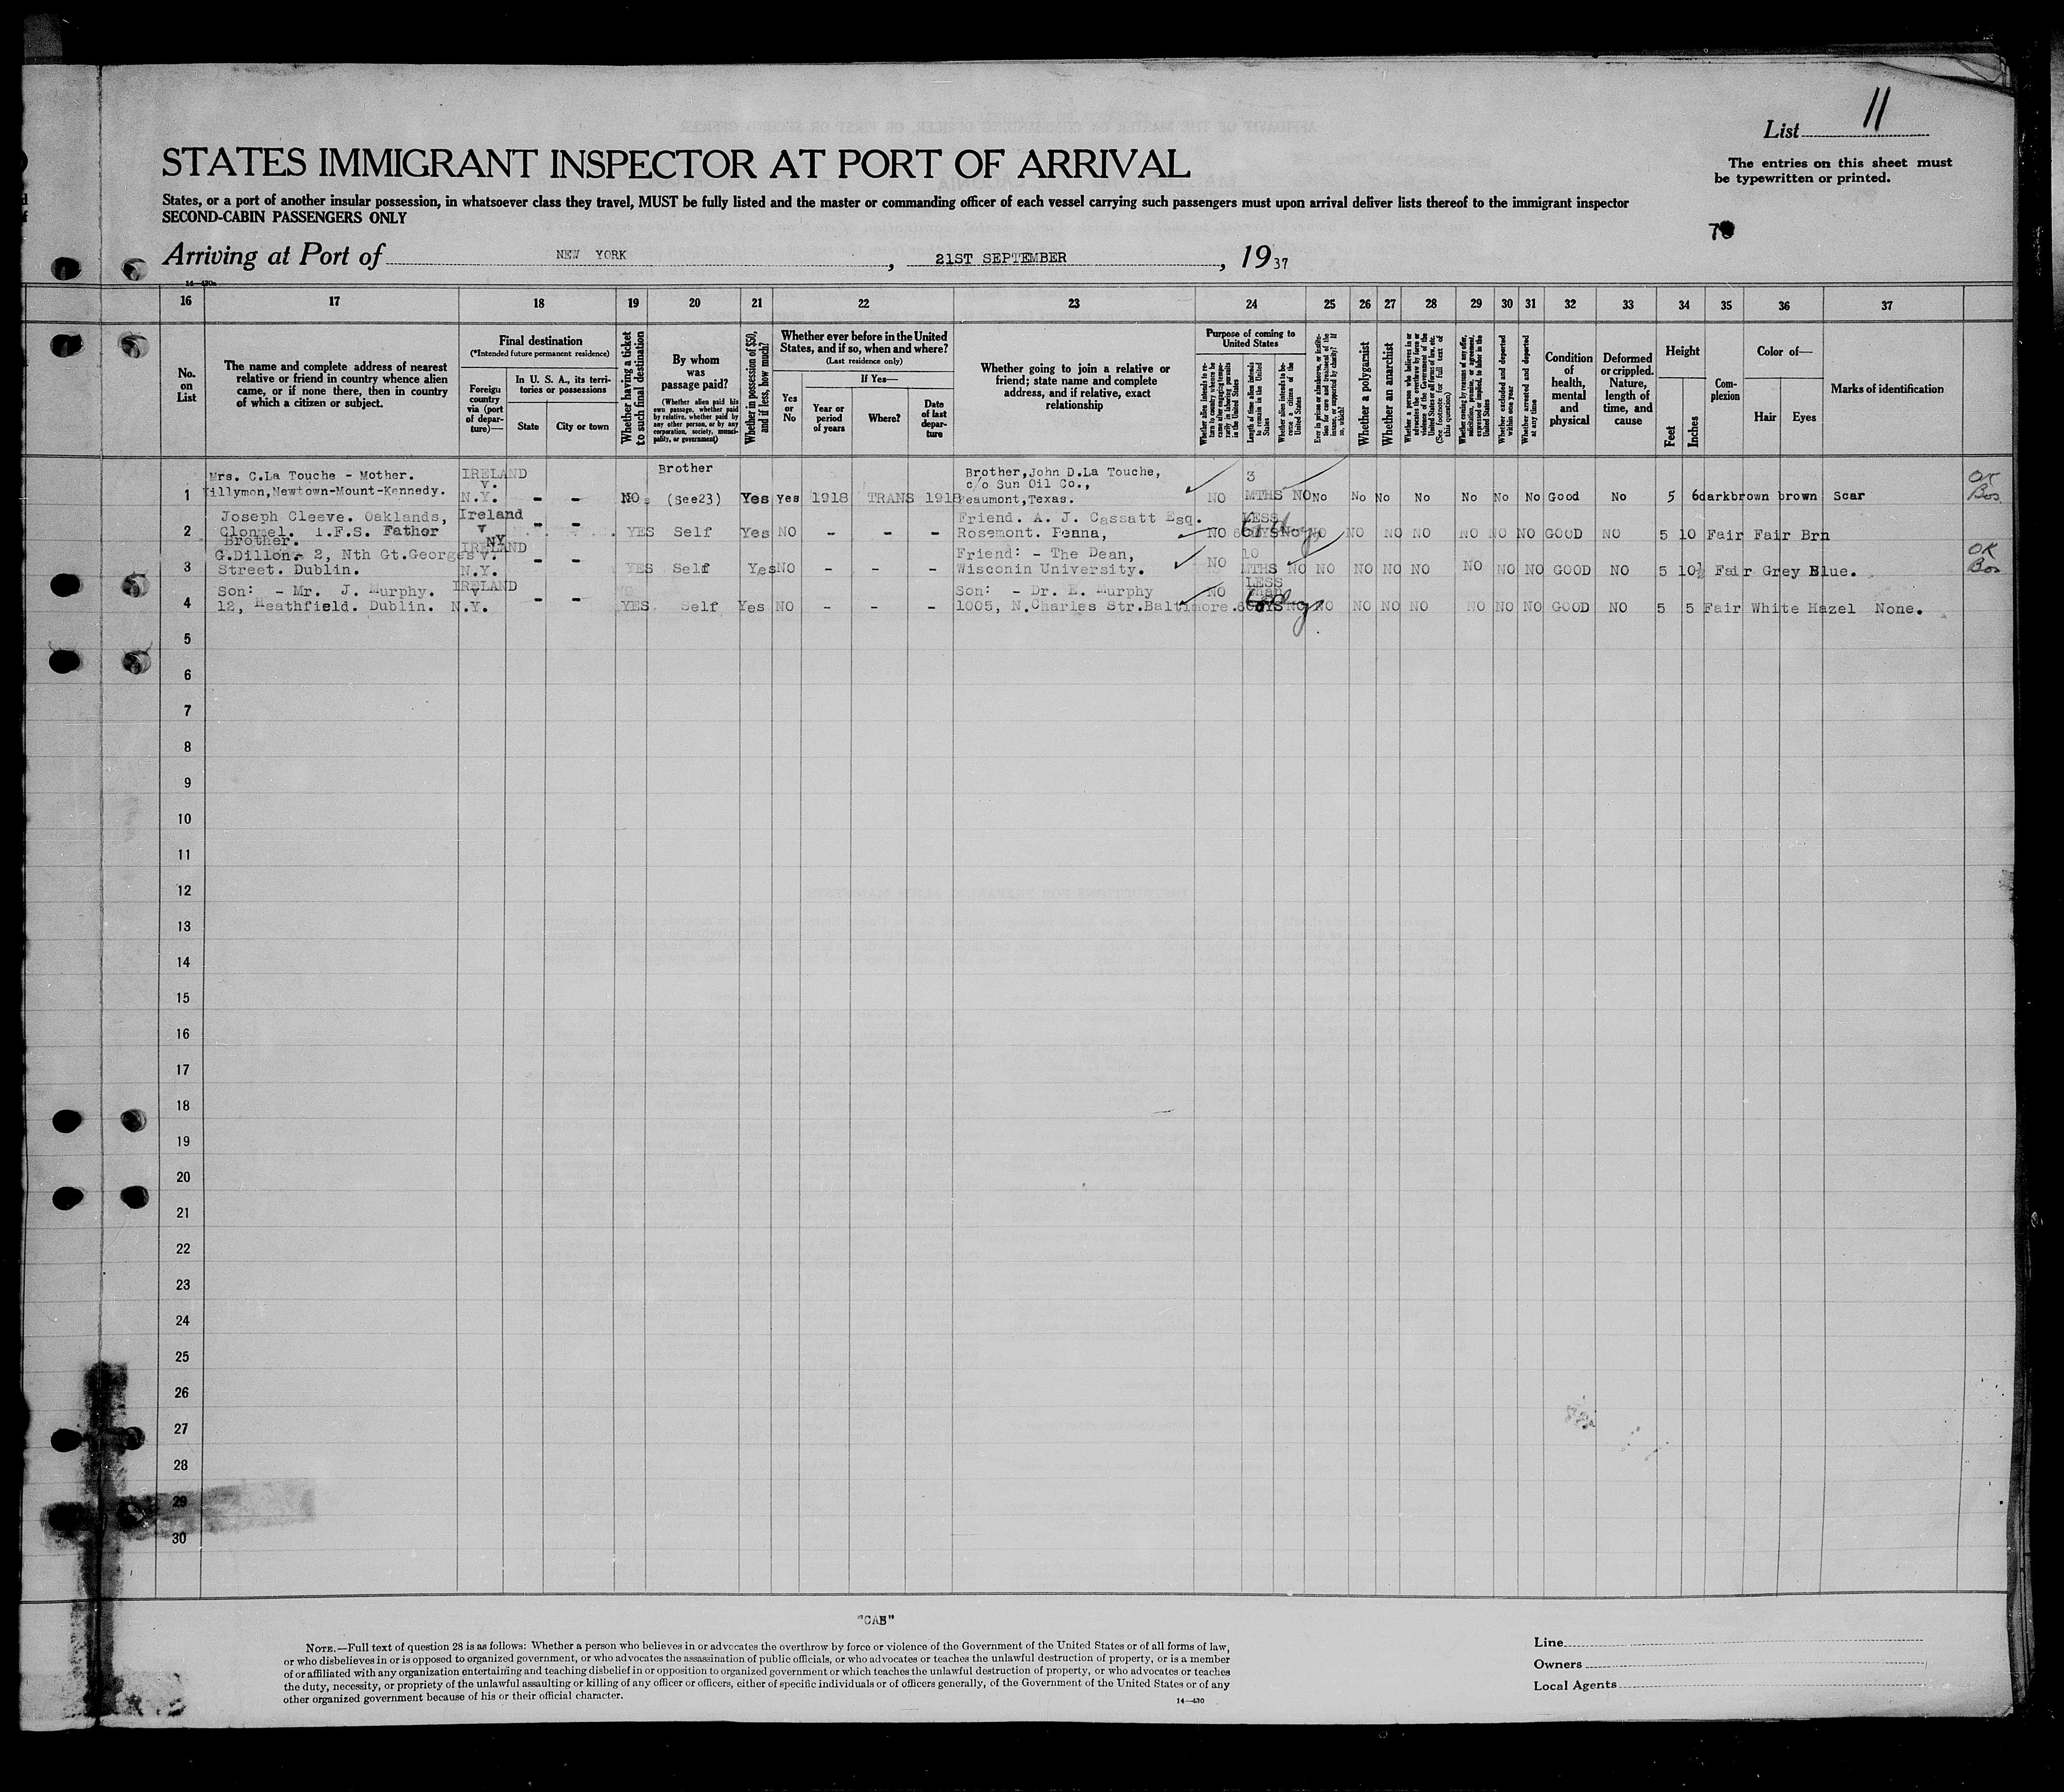 List 11
STATES IMMIGRANT INSPECTOR AT PORT OF ARRIVAL
The entries on this sheet must
be typewritten or printed.
States, or a port of another insular possession, in whatsoever class they travel, MUST be fully listed and the master or commanding officer of each vessel carrying such passengers must upon arrival deliver lists thereof to the immigrant inspector
SECOND-CABIN PASSENGERS ONLY
Arriving at Port of NEW YORK, 21ST SEPTEMBER, 1937
16 17 18 19 20 21 22 23 24 25 26 27 28 29 30 31 32 33 34 35 36 37
No. on List
The name and complete address of nearest relative or friend in country whence alien came, or if none there, then in country of which a citizen or subject.
Final destination
(*Intended future permanent residence)
Foreign country via (port of departure)—
In U. S. A., its territories or possessions
State
City or town
Whether having a ticket to such final destination
By whom was passage paid?
(Whether alien paid his own passage, whether paid by relative, whether paid by any other person, or by any corporation, society, municipality, or government)
Whether in possession of $50, and if less, how much?
Whether ever before in the United States, and if so, when and where?
(Last residence only)
Yes or No
If Yes—
Year or period of years
Where?
Date of last departure
Whether going to join a relative or friend; state name and complete address, and if relative, exact relationship
Purpose of coming to United States
Whether alien intends to return to country whence he came after engaging temporarily in laboring pursuits in the United States
Length of time alien intends to remain in the United States
Whether alien intends to become a citizen of the United States
Ever in prison or almshouse, or institution for care and treatment of the insane, or supported by charity? If so, which?
Whether a polygamist
Whether an anarchist
Whether a person who believes in or advocates the overthrow by force or violence of the Government of the United States or all forms of law, etc. (See footnote for full text of this question)
Whether coming by reason of any offer, solicitation, promise, or agreement, expressed or implied, to labor in the United States
Whether excluded and deported within one year
Whether arrested and deported at any time
Condition of health, mental and physical
Deformed or crippled. Nature, length of time, and cause
Height
Feet
Inches
Complexion
Color of—
Hair
Eyes
Marks of identification
1 Mrs. C.La Touche - Mother. illymon,Newtown-Mount-Kennedy. IRELAND v. N.Y. - - NO. Brother (See23) Yes Yes 1918 TRANS 1918 Brother,John D.La Touche, c/o Sun Oil Co., eaumont,Texas. NO 3 MTHS NO No No No No No No No Good No 5 6 dark brown brown Scar OK
2 Joseph Cleeve. Oaklands, Clonmel. I.F.S. Father Ireland v NY - - YES Self Yes NO - - - Friend. A. J. Cassatt Esq. Rosemont. Penna, NO LESS NO NO NO NO NO NO NO GOOD NO 5 10 Fair Fair Brn
3 Brother. G.Dillon.- 2, Nth Gt.Georges Street. Dublin. IRELAND v. N.Y. - - YES Self Yes NO - - - Friend: - The Dean, Wisconin University. NO 10 MTHS NO NO NO NO NO NO NO NO GOOD NO 5 10½ Fair Grey Blue. OK
4 Son: - Mr. J. Murphy. 12, Heathfield. Dublin. IRELAND v N.Y. - - YES Self Yes NO - - - Son: - Dr. E. Murphy 1005, N.Charles Str.Baltimore. NO LESS than NO NO NO NO NO NO NO NO GOOD NO 5 5 Fair White Hazel None.
5
6
7
8
9
10
11
12
13
14
15
16
17
18
19
20
21
22
23
24
25
26
27
28
29
30
"CAB"
NOTE.—Full text of question 28 is as follows: Whether a person who believes in or advocates the overthrow by force or violence of the Government of the United States or of all forms of law,
or who disbelieves in or is opposed to organized government, or who advocates the assassination of public officials, or who advocates or teaches the unlawful destruction of property, or is a member
of or affiliated with any organization entertaining and teaching disbelief in or opposition to organized government or which teaches the unlawful destruction of property, or who advocates or teaches
the duty, necessity, or propriety of the unlawful assaulting or killing of any officer or officers, either of specific individuals or of officers generally, of the Government of the United States or of any
other organized government because of his or their official character.
14—430
Line
Owners
Local Agents